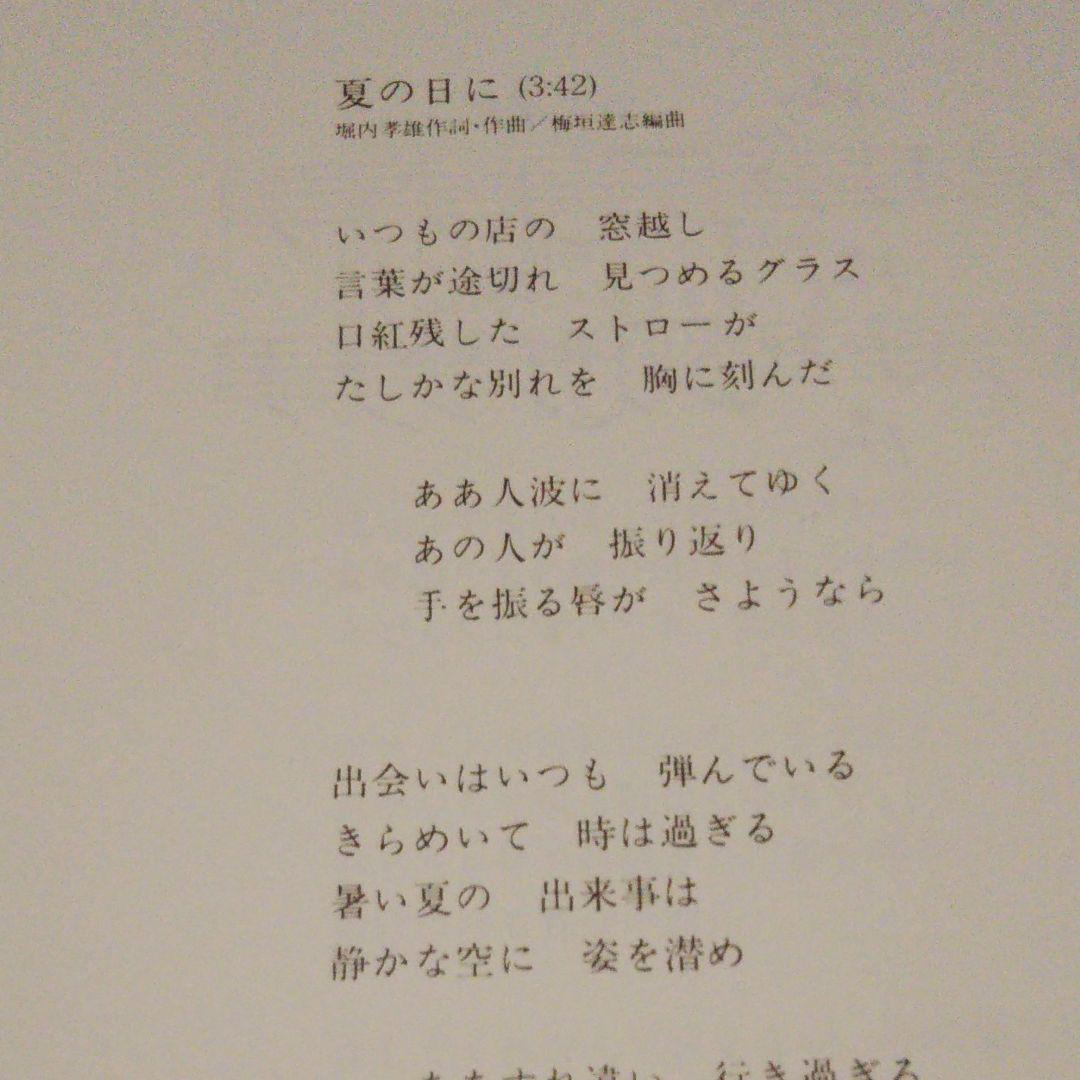 夏の日に (3:42)
堀内孝雄作詞・作曲／梅垣達志編曲
いつもの店の　窓越し
言葉が途切れ　見つめるグラス
口紅残した　ストローが
たしかな別れを　胸に刻んだ
ああ人波に　消えてゆく
あの人が　振り返り
手を振る唇が　さようなら
出会いはいつも　弾んでいる
きらめいて　時は過ぎる
暑い夏の　出来事は
静かな空に　姿を潜め
ああすれ違い　行き過ぎる